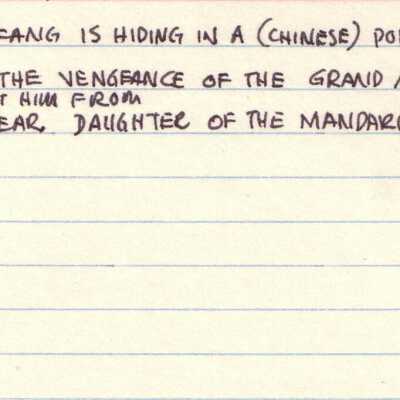 FANG IS HIDING IN A (CHINESE) PO
THE VENGEANCE OF THE GRAND
T HIM FROM
EAR, DAUGHTER OF THE MANDAR